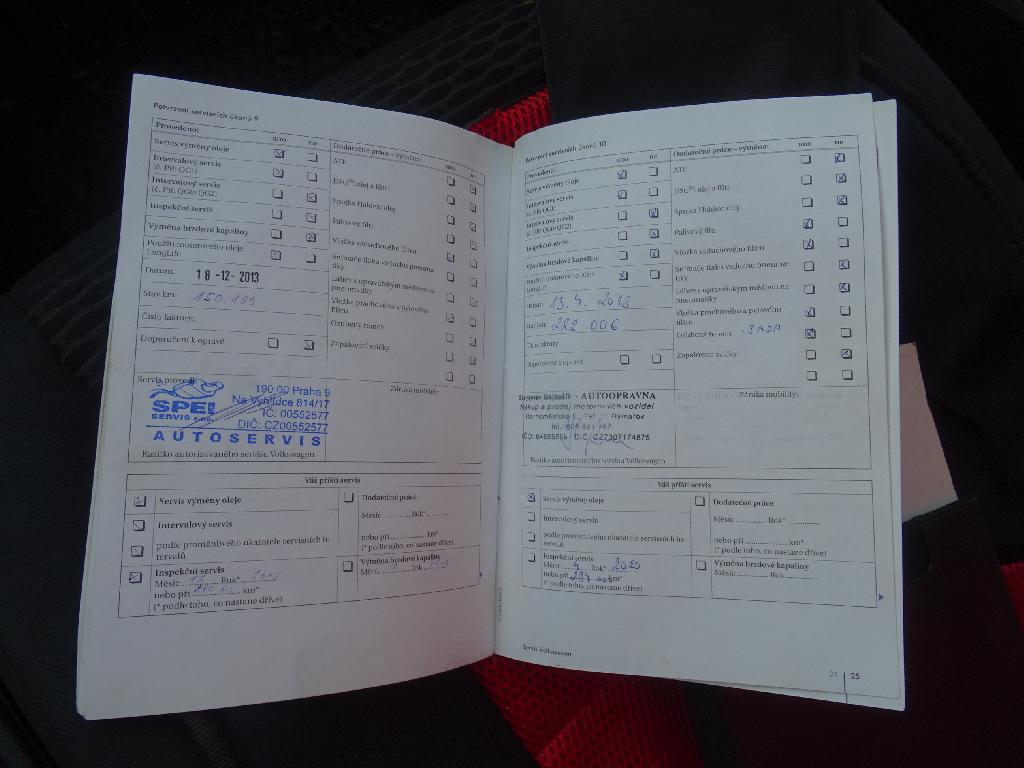 Potvrzení servisních úkonů 9
Provedeno:
ano
ne
Dodatečné práce – výměna:
ano
ne
Servis výměny oleje
Intervalový servis
(č. PR: QG1)
Intervalový servis
(č. PR: QG0/QG2)
Inspekční servis
Výměna brzdové kapaliny
Použití motorového oleje
LongLife
Datum: 18-12-2013
Stav km: 150.189
Číslo faktury:
Doporučení k opravě
ATF
DSG®: olej a filtr
Spojka Haldex: olej
Palivový filtr
Vložka vzduchového filtru
Snímače tlaku vzduchu pneuma-
tiky
Láhev s opravářským médiem na
pneumatiky
Vložka prachového a pylového
filtru
Ozubený řemen
Zapalovací svíčky
Servis provedl:
Záruka mobility:
SPEI
SERVIS s.r.o.
190 00 Praha 9
Na Výhlídce 814/17
IČ: 00552577
DIČ: CZ00552577
AUTOSERVIS
Razítko autorizovaného servisu Volkswagen
Váš příští servis
Servis výměny oleje
Intervalový servis
podle proměnlivého ukazatele servisních in-
tervalů
Inspekční servis
Měsíc Rok*
nebo při km*
(* podle toho, co nastane dříve)
Dodatečné práce
Měsíc ............ Rok* ............
nebo při ............ km*
(* podle toho, co nastane dříve)
Výměna brzdové kapaliny
Měsíc Rok
Potvrzení servisních úkonů 10
Provedeno:
ano
ne
Dodatečné práce – výměna:
ano
ne
Servis výměny oleje
Intervalový servis
(č. PR: QG1)
Intervalový servis
(č. PR: QG0/QG2)
Inspekční servis
Výměna brzdové kapaliny
Použití motorového oleje
LongLife
Datum: 13. 4. 2018
Stav km: 222 006
Číslo faktury
Doporučení k opravě
ATF
DSG®: olej a filtr
Spojka Haldex: olej
Palivový filtr
Vložka vzduchového filtru
Snímače tlaku vzduchu pneuma-
tiky
Láhev s opravářským médiem na
pneumatiky
Vložka prachového a pylového
filtru
Ozubený řemen - SADA
Zapalovací svíčky
Záruka mobility:
- AUTOOPRAVNA
Nákup a prodej motorových vozidel
Horноměstská Rýmařov
DIČ: CZ7307174875
Razítko autorizovaného servisu Volkswagen
Váš příští servis
Servis výměny oleje
Intervalový servis
podle proměnlivého ukazatele servisních in-
tervalů
Inspekční servis
Měsíc 4 Rok* 2020
nebo při km*
(* podle toho, co nastane dříve)
Dodatečné práce
Měsíc ............ Rok* ............
nebo při ............ km*
(* podle toho, co nastane dříve)
Výměna brzdové kapaliny
Měsíc ............ Rok ............
Servis Volkswagen
24 25